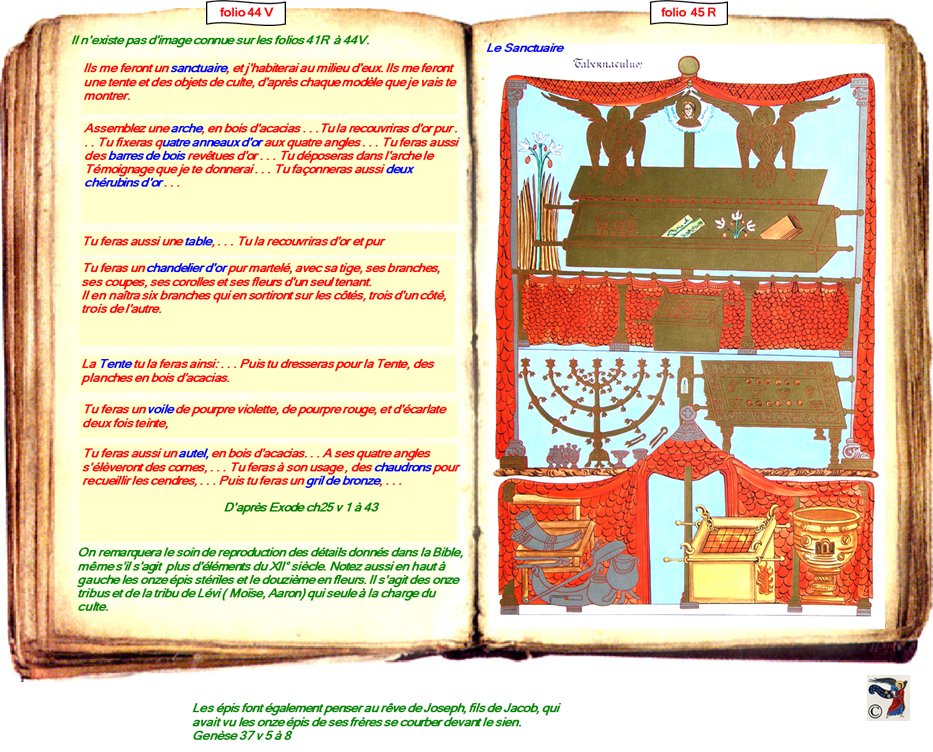 folio 44 V
Il n'existe pas d'image connue sur les folios 41R à 44V.
Ils me feront un sanctuaire, et j'habiterai au milieu d'eux. Ils me feront
une tente et des objets de culte, d'après chaque modèle que je vais te
montrer.
Assemblez une arche, en bois d'acacias . . . Tu la recouvriras d'or pur .
. . Tu fixeras quatre anneaux d'or aux quatre angles . . . Tu feras aussi
des barres de bois revêtues d'or . . . Tu déposeras dans l'arche le
Témoignage que je te donnerai . . . Tu façonneras aussi deux
chérubins d'or . . .
Tu feras aussi une table, . . . Tu la recouvriras d'or et pur
Tu feras un chandelier d'or pur martelé, avec sa tige, ses branches,
ses coupes, ses corolles et ses fleurs d'un seul tenant.
Il en naîtra six branches qui en sortiront sur les côtés, trois d'un côté,
trois de l'autre.
La Tente tu la feras ainsi: . . . Puis tu dresseras pour la Tente, des
planches en bois d'acacias.
Tu feras un voile de pourpre violette, de pourpre rouge, et d'écarlate
deux fois teinte,
Tu feras aussi un autel, en bois d'acacias. . . A ses quatre angles
s'élèveront des cornes, . . . Tu feras à son usage , des chaudrons pour
recueillir les cendres, . . . Puis tu feras un gril de bronze, . . .
D'après Exode ch25 v 1 à 43
On remarquera le soin de reproduction des détails donnés dans la Bible,
même s'il s'agit plus d'éléments du XII° siècle. Notez aussi en haut à
gauche les onze épis stériles et le douzième en fleurs. Il s'agit des onze
tribus et de la tribu de Lévi ( Moïse, Aaron) qui seule à la charge du
culte.
folio 45 R
Le Sanctuaire
Tabernaculum
©
Les épis font également penser au rêve de Joseph, fils de Jacob, qui
avait vu les onze épis de ses frères se courber devant le sien.
Genèse 37 v 5 à 8